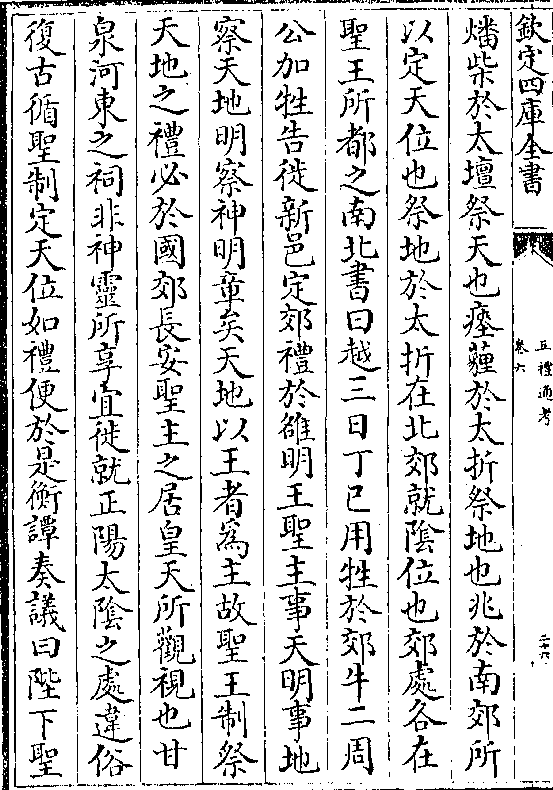 欽定四庫全書
五禮通考
卷六
二十六
燔柴於太壇祭天也瘞薶於太折祭地也兆於南郊所
以定天位也祭地於太折在北郊就陰位也郊處各在
聖王所都之南北書曰越三日丁巳用牲於郊牛二周
公加牲告徙新邑定郊禮於雒明王聖主事天明事地
察天地明察神明章矣天地以王者為主故聖王制祭
天地之禮必於國郊長安聖主之居皇天所觀視也甘
泉河東之祠非神靈所享宜徙就正陽太陰之處違俗
復古循聖制定天位如禮便於是衡譚奏議曰陛下聖